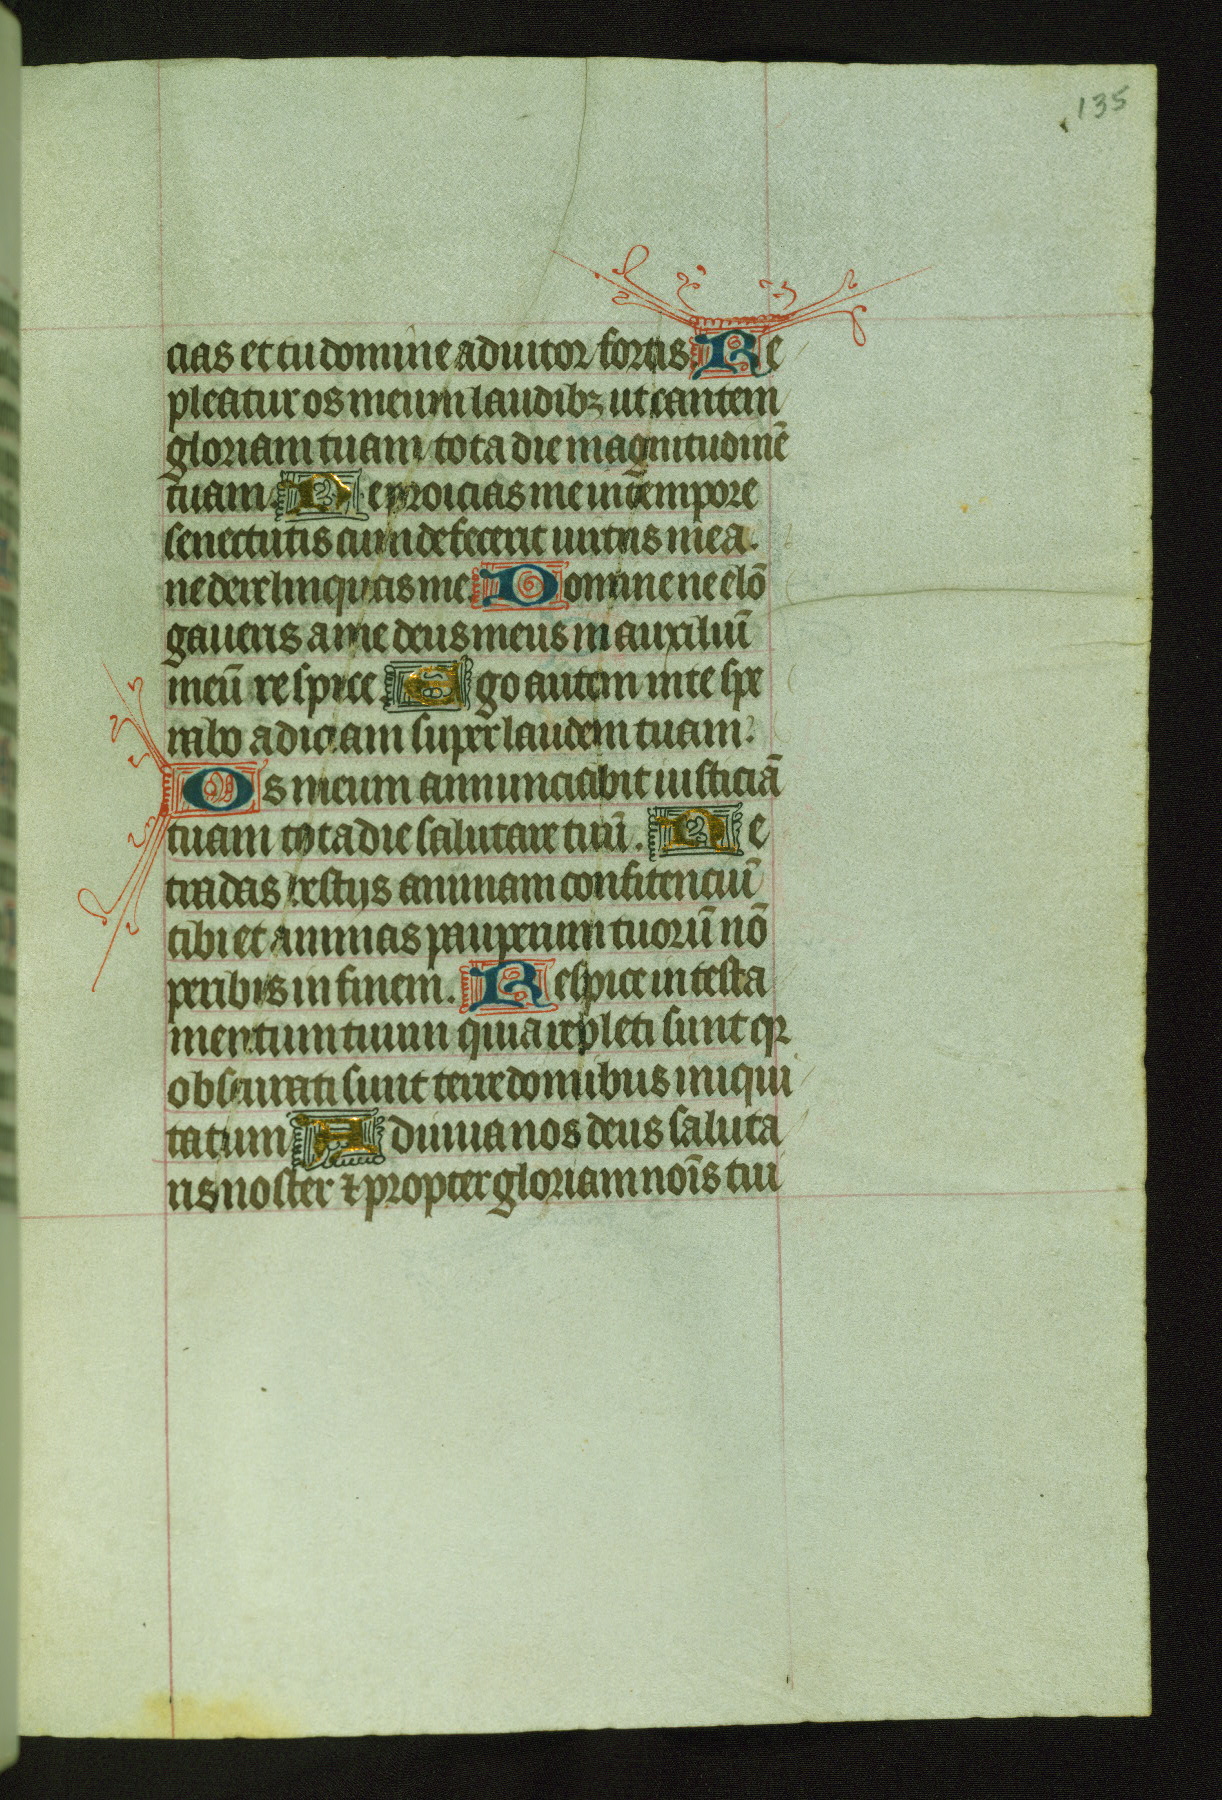 135
cias et tu domine adiutor fortis. Re
pleatur os meum laudibꝫ ut cantem
gloriam tuam tota die magnitudinē
tuam. Ne proicias me in tempore
senectutis cum defecerit uirtus mea.
ne derelinquas me. Domine ne elō
gaueris a me deus meus in auxiliū
meū respice. Ego autem in te spe
rabo adiciam super laudem tuam.
Os meum annunciabit iusticiā
tuam tota die salutare tuū. Ne
tradas bestijs animam confitenciū
tibi et animas pauperum tuorū nō
peribis in finem. Respice in testa
mentum tuum quia repleti sunt qꝛ
obscurati sunt terre domibus iniqui
tatum Adiuua nos deus saluta
ris noster ⁊ propter gloriam noīs tui